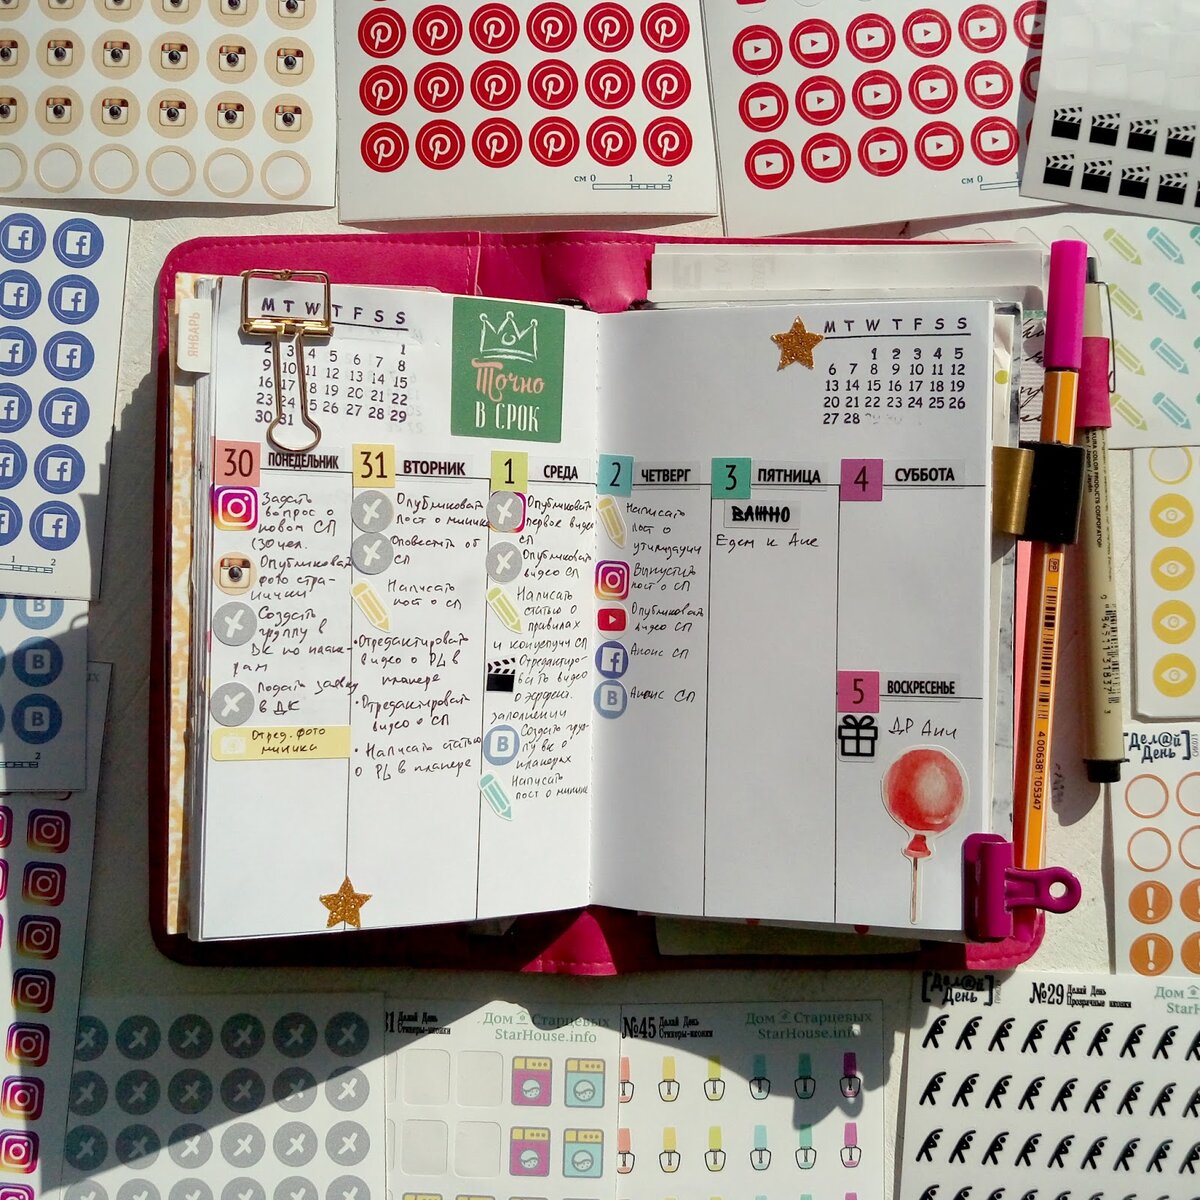 см 0 1 2
см 0
ЯНВАРЬ
M T W T F S S
1
2 3 4 5 6 7 8
9 10 11 12 13 14 15
16 17 18 19 20 21 22
23 24 25 26 27 28 29
30 31
Точно
В СРОК
M T W T F S S
1 2 3 4 5
6 7 8 9 10 11 12
13 14 15 16 17 18 19
20 21 22 23 24 25 26
27 28
30 ПОНЕДЕЛЬНИК
Задать
вопрос о
новом СП
(30 чел.
Опубликовать
фото стра-
нички
Создать
группу в
ВК по плане-
рам
Подать заявку
в ДК
Отред. фото
мишка
31 ВТОРНИК
Опубликовать
пост о мишке
Оповестить об
СП
Написать
пост о СП
•Отредактировать
видео о PL в
планере
•Отредактировать
видео о СП
•Написать статью
о PL в планере
1 СРЕДА
Опубликовать
первое видео
СП
Опубликовать
видео СП
Написать
статью о
правилах
и концепции СП
Отредактиро-
вать видео
заполнении
Создать груп-
пу вк о
планерах
Написать
пост о мишке
2 ЧЕТВЕРГ
Написать
пост о
утилизации
Выпустить
пост о СП
Опубликовать
видео СП
Анонс СП
Анонс СП
3 ПЯТНИЦА
ВАЖНО
Едем к Ане
4 СУББОТА
5 ВОСКРЕСЕНЬЕ
ДР Ани
4 006381 105347
[Дел@й
День]
31 Делай День
Стикеры-иконки
Дом Старцевых
StarHouse.info
№45 Делай День
Стикеры-иконки
Дом Старцевых
StarHouse.info
[Дел@й
День]
№29 Делай День
Прозрачные иконки
Дом
StarH